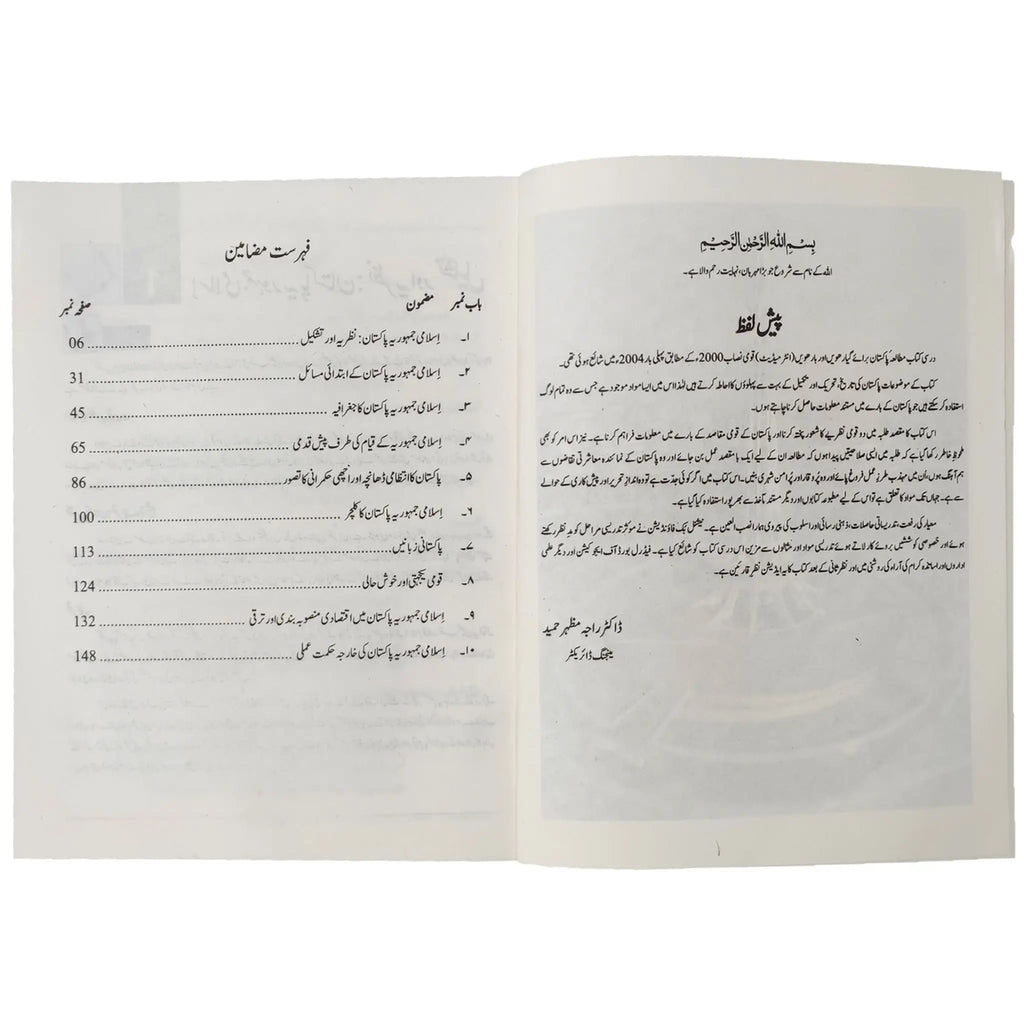 بِسْمِ اللهِ الرَّحْمٰنِ الرَّحِیْمِ
اللہ کے نام سے شروع جو بڑا مہربان، نہایت رحم والا ہے۔
پیش لفظ
درسی کتاب مطالعہ پاکستان برائے گیارھویں اور بارھویں (انٹرمیڈیٹ) قومی نصاب 2000ء کے مطابق پہلی بار 2004ء میں شائع ہوئی تھی۔
کتاب کے موضوعات پاکستان کی تاریخ، تحریک اور تکمیل کے بہت سے پہلوؤں کا احاطہ کرتے ہیں لہٰذا اس میں ایسا مواد موجود ہے جس سے وہ تمام لوگ
استفادہ کر سکتے ہیں جو پاکستان کے بارے میں مستند معلومات حاصل کرنا چاہتے ہوں۔
اس کتاب کا مقصد طلبہ میں دو قومی نظریے کا شعور پختہ کرنا اور پاکستان کے قومی مقاصد کے بارے میں معلومات فراہم کرنا ہے۔ نیز اس امر کو بھی
ملحوظِ خاطر رکھا گیا ہے کہ طلبہ میں ایسی صلاحیتیں پیدا ہوں کہ مطالعہ ان کے لیے ایک بامقصد عمل بن جائے اور وہ پاکستان کے نمائندہ معاشرتی تقاضوں سے
ہم آہنگ ہوں، اُن میں مہذب طرزِ عمل فروغ پائے اور وہ پُروقار اور پُرامن شہری بنیں۔ اس کتاب میں اگر کوئی جدت ہے تو وہ اندازِ تحریر اور پیش کاری کے حوالے
سے ہے۔ جہاں تک مواد کا تعلق ہے تو اس کے لیے مطبوعہ کتابوں اور دیگر مستند مآخذ سے بھرپور استفادہ کیا گیا ہے۔
معیار کی رفعت، تدریسی حاصلات، ذہنی رسائی اور اسلوب کی پیروی ہمارا نصب العین ہے۔ نیشنل بک فاؤنڈیشن نے موثر تدریسی مراحل کو مدِنظر رکھتے
ہوئے اور خصوصی کوششیں بروئے کار لاتے ہوئے تدریسی مواد اور مثالوں سے مزین اس درسی کتاب کو شائع کیا ہے۔ فیڈرل بورڈ آف ایجوکیشن اور دیگر علمی
اداروں اور اساتذہ کرام کی آراء کی روشنی میں اور نظرثانی کے بعد کتاب کا یہ ایڈیشن نظرِ قارئین ہے۔
ڈاکٹر راجہ مظہر حمید
مینجنگ ڈائریکٹر
فہرست مضامین
باب نمبر مضمون صفحہ نمبر
۱۔ اِسلامی جمہوریہ پاکستان: نظریہ اور تشکیل 06
۲۔ اِسلامی جمہوریہ پاکستان کے ابتدائی مسائل 31
۳۔ اِسلامی جمہوریہ پاکستان کا جغرافیہ 45
۴۔ اِسلامی جمہوریہ کے قیام کی طرف پیش قدمی 65
۵۔ پاکستان کا انتظامی ڈھانچہ اور اچھی حکمرانی کا تصور 86
۶۔ اِسلامی جمہوریہ پاکستان کا کلچر 100
۷۔ پاکستانی زبانیں 113
۸۔ قومی یکجہتی اور خوش حالی 124
۹۔ اِسلامی جمہوریہ پاکستان میں اقتصادی منصوبہ بندی اور ترقی 132
۱۰۔ اِسلامی جمہوریہ پاکستان کی خارجہ حکمت عملی 148